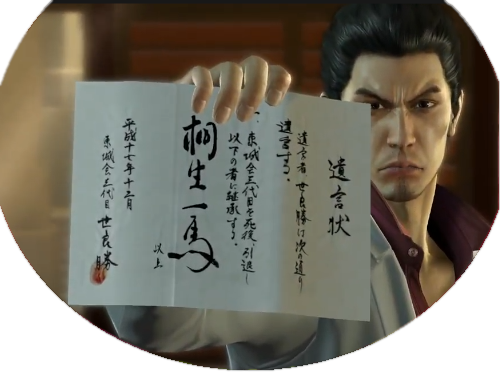 遺言状
遺言者 世良勝は次の通り
遺言する。
一、東城会三代目を死後、引退し
以下の者に継承する。
桐生一馬
以上
平成十七年十二月
東城会三代目 世良勝